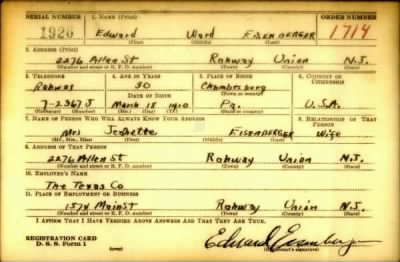 SERIAL NUMBER 1. NAME (Print) ORDER NUMBER
1920 Edward Ward Eisenberger 1714
(First) (Middle) (Last)
2. ADDRESS (Print)
2276 Allen St Rahway Union N.J.
(Number and street or R. F. D. number) (Town) (County) (State)
3. TELEPHONE 4. AGE IN YEARS 5. PLACE OF BIRTH 6. COUNTRY OF CITIZENSHIP
Rahway 30 Chambersburg
DATE OF BIRTH (Town or county)
7-2367 J March 18 1910 Pa. U.S.A.
(Mo.) (Day) (Yr.) (State or country)
7. NAME OF PERSON WHO WILL ALWAYS KNOW YOUR ADDRESS 8. RELATIONSHIP OF THAT PERSON
Mrs Jennette Eisenberger Wife
(Mr., Mrs., Miss) (First) (Middle) (Last)
9. ADDRESS OF THAT PERSON
2276 Allen St Rahway Union N.J.
(Number and street or R. F. D. number) (Town) (County) (State)
10. EMPLOYER'S NAME
The Texas Co
11. PLACE OF EMPLOYMENT OR BUSINESS
1574 Main St Rahway Union N.J.
(Number and street or R. F. D. number) (Town) (County) (State)
I AFFIRM THAT I HAVE VERIFIED ABOVE ANSWERS AND THAT THEY ARE TRUE.
REGISTRATION CARD
D. S. S. Form 1 Edward Eisenberger
(over) (Registrant's signature)